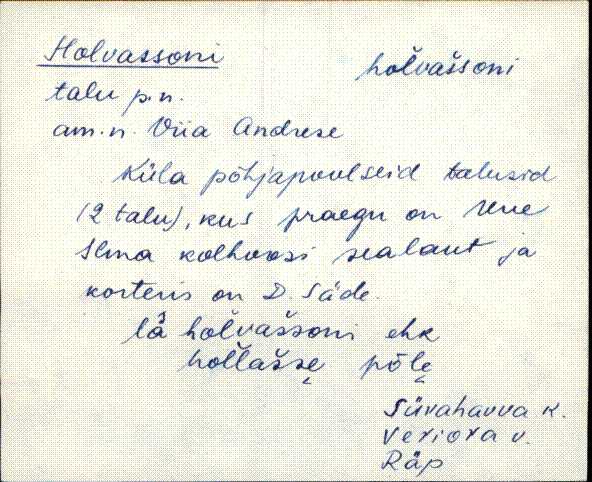 Holvassoni holvašsoni
talu p.n.
am.n. Viia Andrese
Küla põhjapoolseid talusid
(2 talu), kus praegu on Uue
Ilma kolhoosi sealaut ja
korteris on D. Säde.
holvašsoni ehk
hollašsę põlę
Süvahavva k.
Veriora v.
Räp